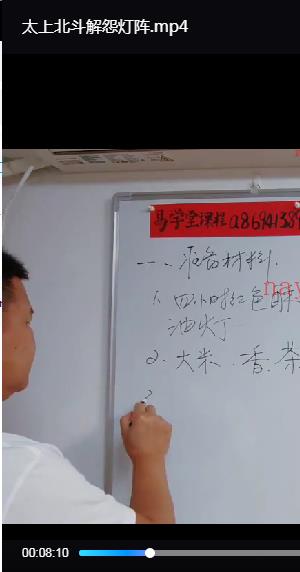 太上北斗解怨灯阵.mp4
易学堂课程
一、准备材料.
1. 四小时红色酥
油火丁
2. 大米. 香. 茶
3
00:08:10